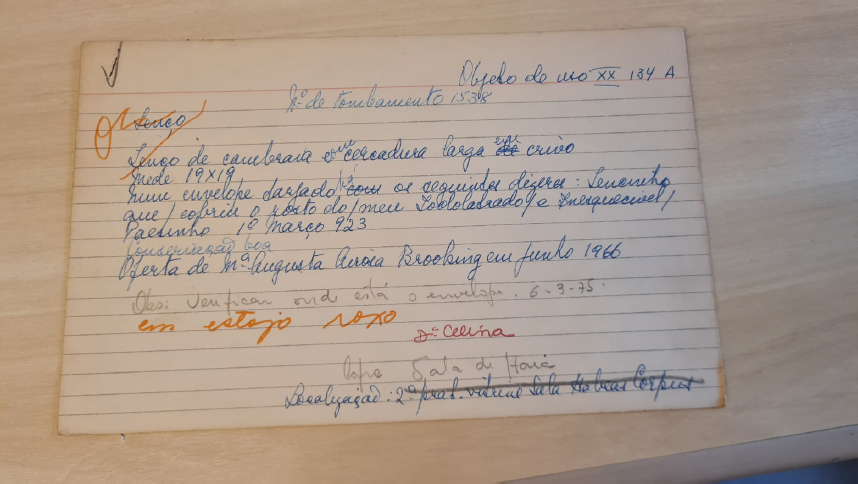 Objeto de uso XX 134 A
Nº de tombamento 1538
Lenço
Lenço de cambraia cercadura larga crivo
Mede 19x19
num envelope tarjado com os seguintes dizeres: Lencinho
que / cobriu o rosto do / meu Idolatrado / e Inesquecivel /
Paesinho 1º Março 923
Conservação boa
Oferta de Mª Augusta Brooking em junho 1966
Obs: Verificar onde está o envelope. 6-3-75.
em estojo roxo
Dª Celina
Sala de
Localização: 2ª prat. vitrine Sala Habeas Corpus